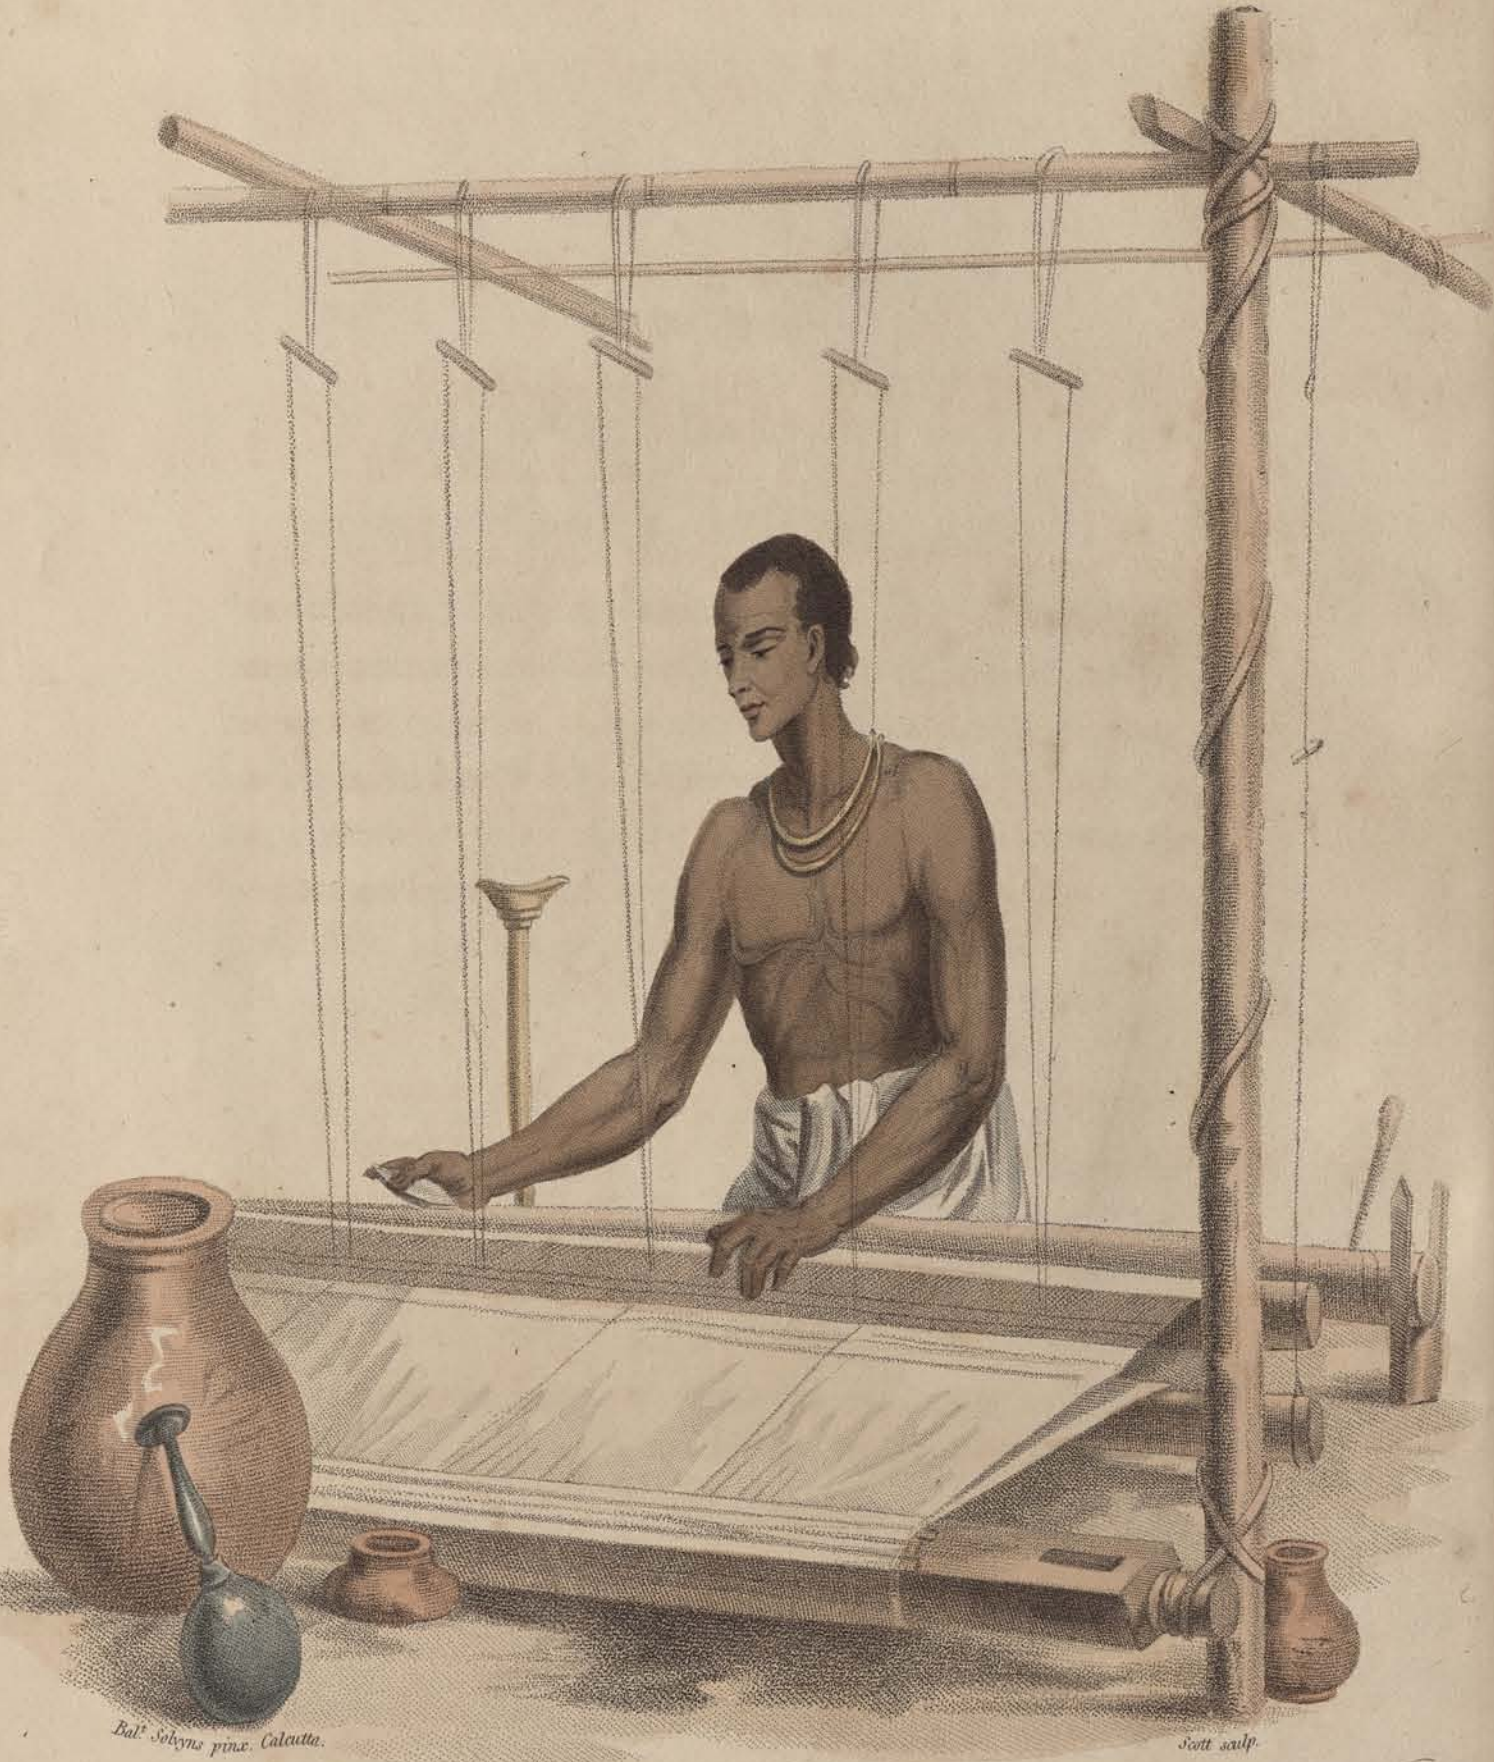 Bal.t Solvyns pinx. Calcutta.
Scott sculp.